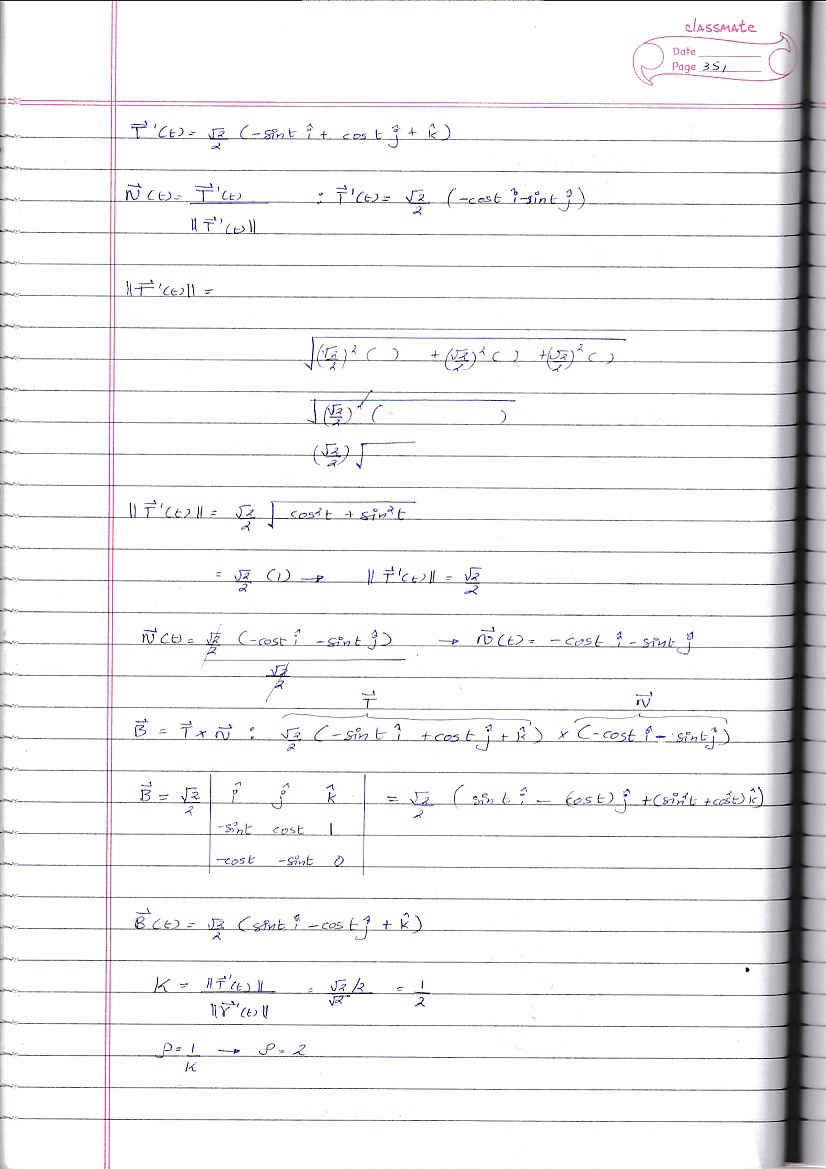 classmate
Date
Page 351
T⃗'(t) = √2/2 (-sint î + cost ĵ + k̂)
N⃗(t) = T⃗'(t) / ||T⃗'(t)|| : T⃗'(t) = √2/2 (-cost î - sint ĵ)
||T⃗'(t)|| =
√((√2/2)² ( ) + (√2/2)² ( ) + (√2/2)² ( ))
√((√2/2)² ( ))
(√2/2) √
||T⃗'(t)|| = √2/2 √(cos²t + sin²t)
= √2/2 (1) → ||T⃗'(t)|| = √2/2
N⃗(t) = √2/2 (-cost î - sint ĵ) / √2/2 → N⃗(t) = -cost î - sint ĵ
T⃗ N⃗
B⃗ = T⃗ × N⃗ : √2/2 (-sint î + cost ĵ + k̂) × (-cost î - sint ĵ)
B⃗ = √2/2 | î ĵ k̂ | = √2/2 (sint î - (cost) ĵ + (sin²t + cos²t) k̂)
-sint cost 1
-cost -sint 0
B⃗(t) = √2/2 (sint î - cost ĵ + k̂)
K = ||T⃗'(t)|| / ||r⃗'(t)|| = √2/2 / √2 = 1/2
ρ = 1/K → ρ = 2